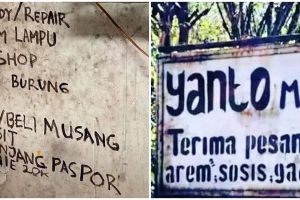 DY/REPAIR
M LAMPU
SHOP
BURUNG
/BELI MUSANG
SIT
NJANG PASPOR
yanto M
Terima pesan
arem, sosis, ga